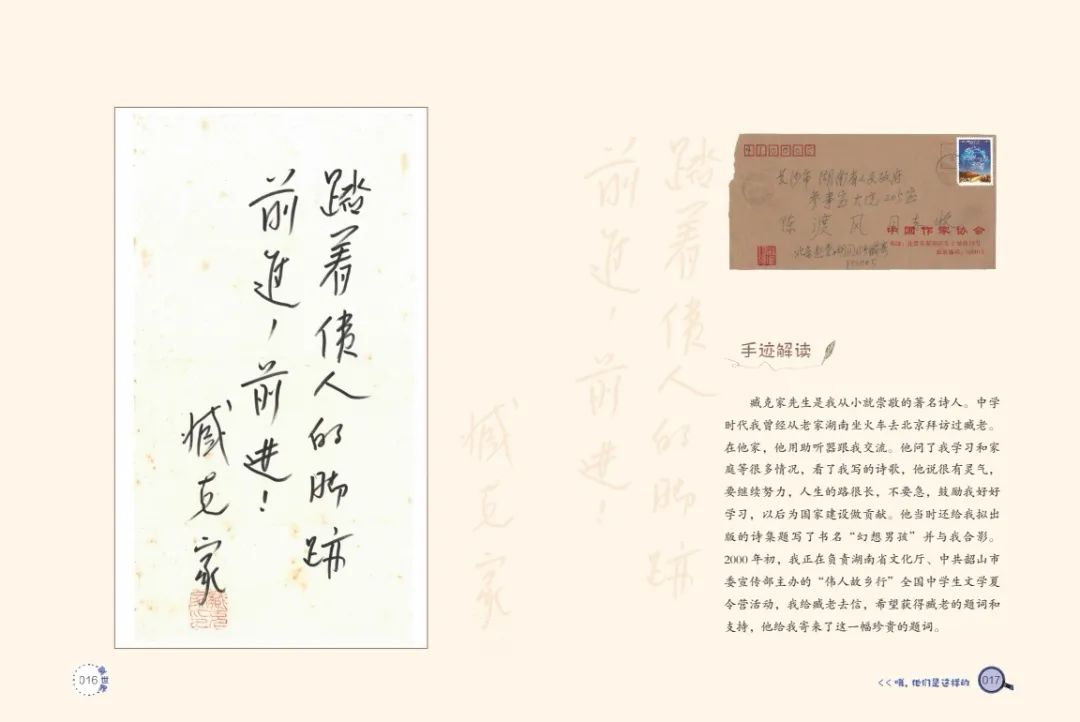 踏着偉人的脚跡
前進，前進！
臧克家
长沙市 湖南省人民政府
参事室大院205室
陈 渡 风
中国作家协会
手迹解读
臧克家先生是我从小就崇敬的著名诗人。中学
时代我曾经从老家湖南坐火车去北京拜访过臧老。
在他家，他用助听器跟我交流。他问了我学习和家
庭等很多情况，看了我写的诗歌，他说很有灵气，
要继续努力，人生的路很长，不要急，鼓励我好好
学习，以后为国家建设做贡献。他当时还给我拟出
版的诗集题写了书名“幻想男孩”并与我合影。
2000 年初，我正在负责湖南省文化厅、中共韶山市
委宣传部主办的“伟人故乡行”全国中学生文学夏
令营活动，我给臧老去信，希望获得臧老的题词和
支持，他给我寄来了这一幅珍贵的题词。
016
<<哦，他们是这样的
017